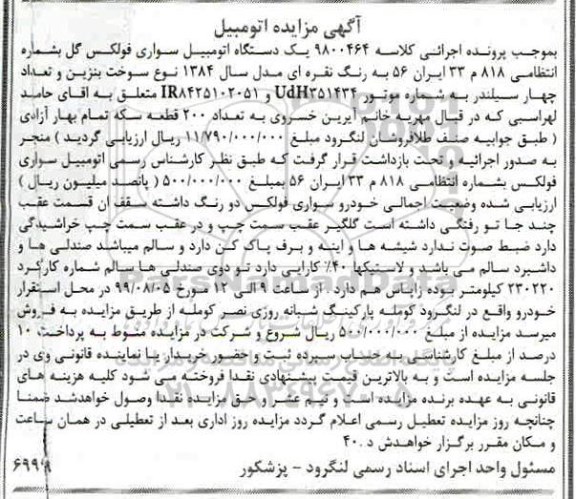 آگهی مزایده اتومبیل
بموجب پرونده اجرائی کلاسه ۹۸۰۰۴۶۴ یک دستگاه اتومبیل سواری فولکس گل بشماره
انتظامی ۸۱۸ م ۳۳ ایران ۵۶ به رنگ نقره ای مدل سال ۱۳۸۴ نوع سوخت بنزین و تعداد
چهار سیلندر به شماره موتور UdH۳۵۱۴۳۴ و IR۸۴۲۵۱۰۲۰۵۱ متعلق به اقای حامد
لهراسبی که در قبال مهریه خانم آیرین خسروی به تعداد ۲۰۰ قطعه سکه تمام بهار آزادی
( طبق جوابیه صنف طلافروشان لنگرود مبلغ ۱۱/۷۹۰/۰۰۰/۰۰۰ ریال ارزیابی گردید ) منجر
به صدور اجرائیه و تحت بازداشت قرار گرفت که طبق نظر کارشناس رسمی اتومبیل سواری
فولکس بشماره انتظامی ۸۱۸ م ۳۳ ایران ۵۶ بمبلغ ۵۰۰/۰۰۰/۰۰۰ ( پانصد میلیون ریال )
ارزیابی شده وضعیت اجمالی خودرو سواری فولکس دو رنگ داشته سقف ان قسمت عقب
چند جا تو رفتگی داشته است گلگیر عقب سمت چپ و در عقب سمت چپ خراشیدگی
دارد ضبط صوت ندارد شیشه ها و اینه و برف پاک کن دارد و سالم میباشد صندلی ها و
داشبرد سالم می باشد و لاستیکها ۴۰٪ کارایی دارد تو دوی صندلی ها سالم شماره کارکرد
۲۳۰۲۲۰ کیلومتر بوده زاپاس هم دارد. از ساعت ۹ الی ۱۲ مورخ ۹۹/۰۸/۰۵ در محل استقرار
خودرو واقع در لنگرود کومله پارکینگ شبانه روزی نصر کومله از طریق مزایده به فروش
میرسد مزایده از مبلغ ۵۰۰/۰۰۰/۰۰۰ ریال شروع و شرکت در مزایده منوط به پرداخت ۱۰
درصد از مبلغ کارشناسی به حساب سپرده ثبت و حضور خریدار یا نماینده قانونی وی در
جلسه مزایده است و به بالاترین قیمت پیشنهادی نقدا فروخته می شود کلیه هزینه های
قانونی به عهده برنده مزایده است و نیم عشر و حق مزایده نقدا وصول خواهدشد ضمنا
چنانچه روز مزایده تعطیل رسمی اعلام گردد مزایده روز اداری بعد از تعطیلی در همان ساعت
و مکان مقرر برگزار خواهدش د .۴۰
مسئول واحد اجرای اسناد رسمی لنگرود - پزشکور
۶۹۹۹